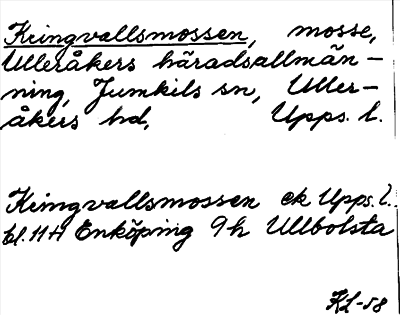 Kringvallsmossen, mosse,
Ulleråkers häradsallmän-
ning, Jumkils sn, Uller-
åkers hd, Upps. l.
Kringvallsmossen ek Upps. l.
bl. 11H Enköping 9h Ullbolsta
KL-58